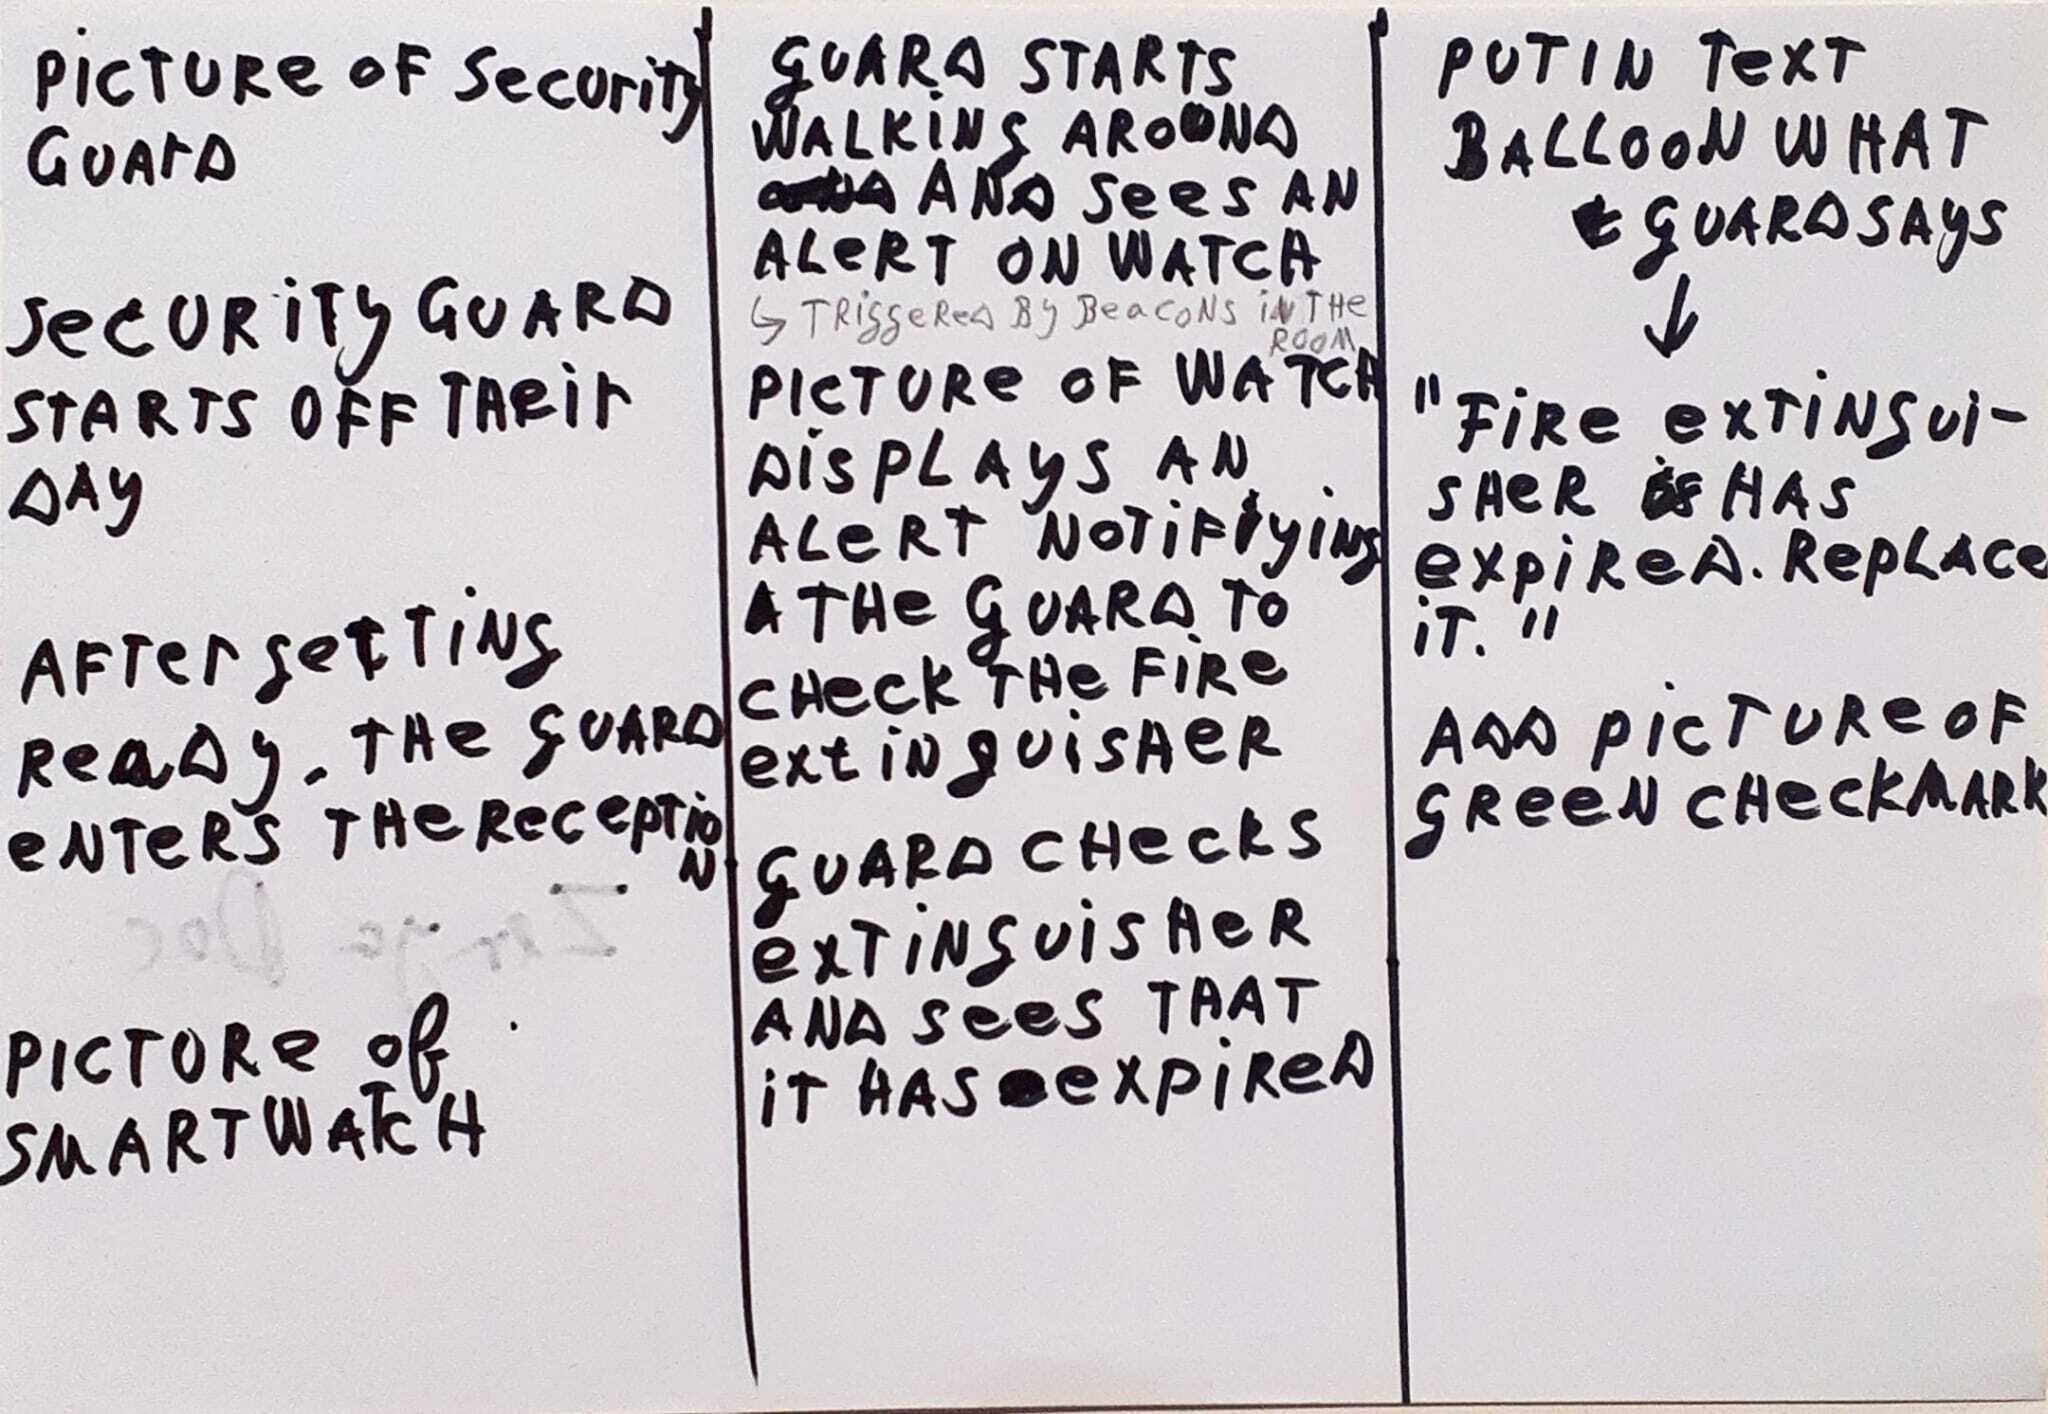 PICTURE OF SECURITY
GUARD
SECURITY GUARD
STARTS OFF THEIR
DAY
AFTER GETTING
READY. THE GUARD
ENTERS THE RECEPTIO
N
PICTURE OF
SMARTWATCH
GUARD STARTS
WALKING AROUND
AND SEES AN
ALERT ON WATCH
↳ TRIGGERED BY BEACONS IN THE
ROOM
PICTURE OF WATCH
DISPLAYS AN
ALERT NOTIFIYING
THE GUARD TO
CHECK THE FIRE
EXTINGUISHER
GUARD CHECKS
EXTINGUISHER
AND SEES THAT
IT HAS EXPIRED
PUT IN TEXT
BALLOON WHAT
GUARD SAYS
↓
"FIRE EXTINGUI-
SHER HAS
EXPIRED. REPLACE
IT."
ADD PICTURE OF
GREEN CHECKMARK